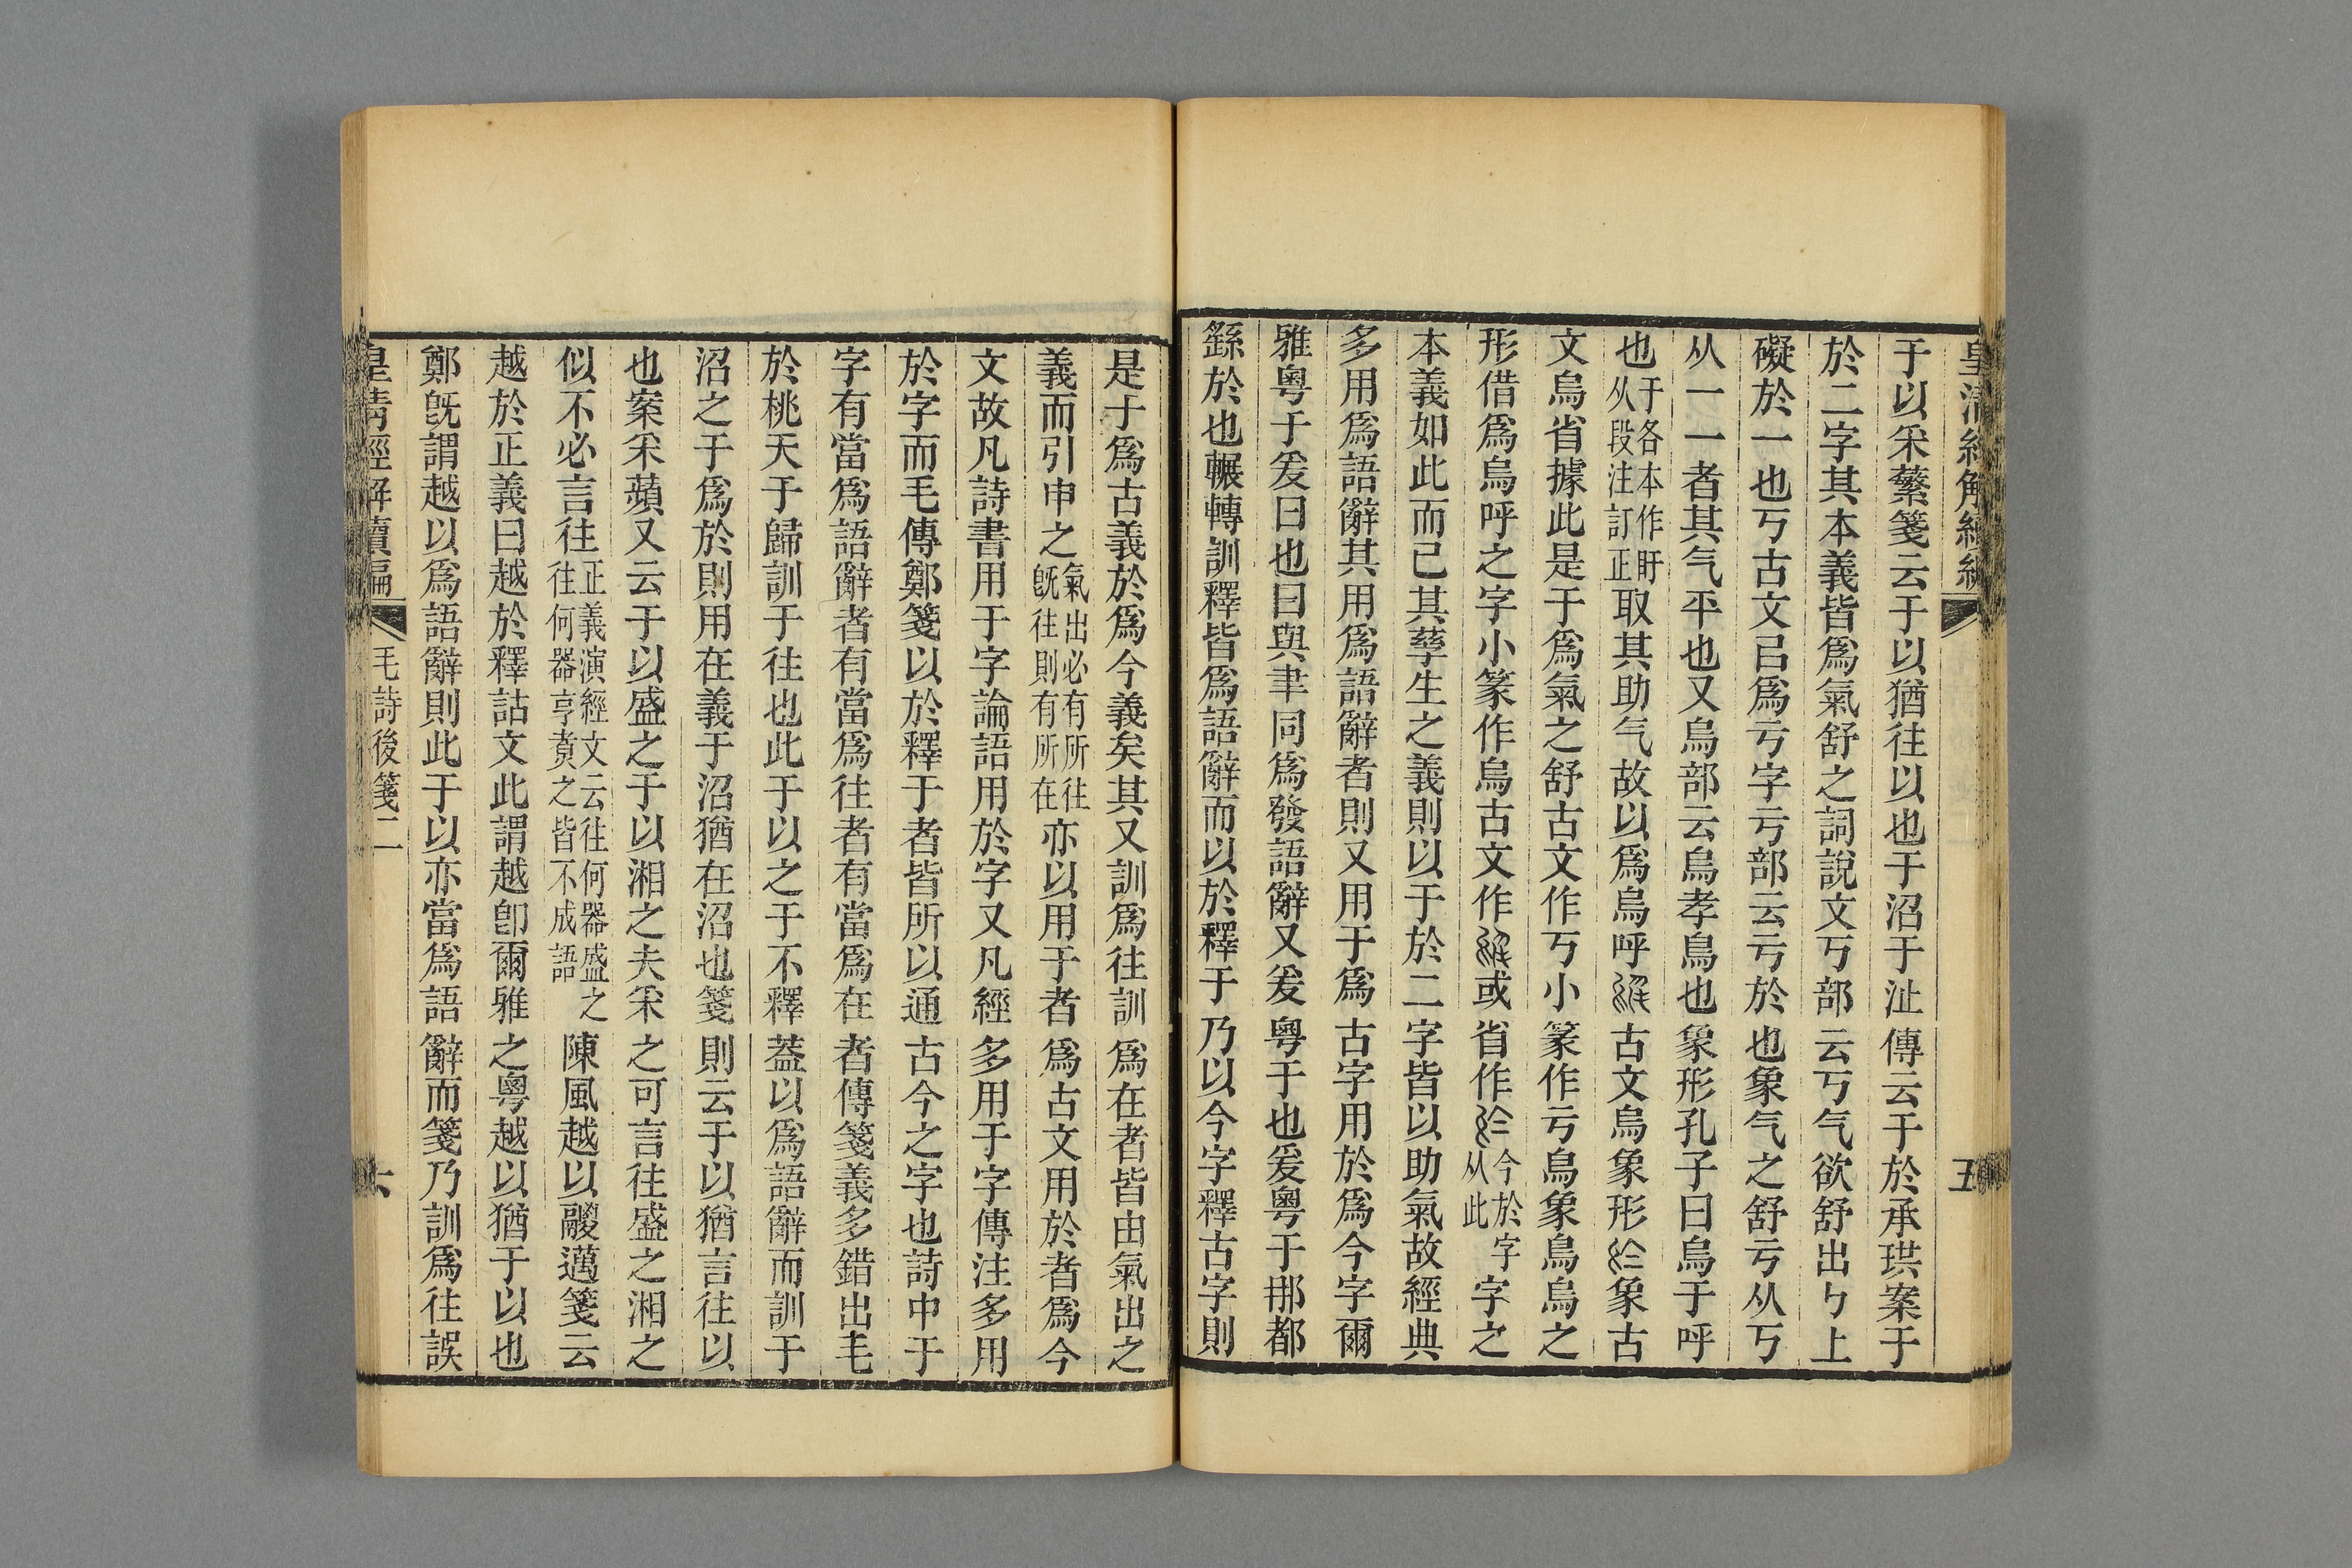 皇清經解續編
五
于以采蘩箋云于以猶往以也于沼于沚傳云于於承珙案于
於二字其本義皆爲氣舒之詞說文丂部云丂气欲舒出ㄣ上
礙於一也丂古文㠯爲亏字亏部云亏於也象气之舒亏从丂
从一一者其气平也又烏部云烏孝鳥也象形孔子曰烏于呼
也于各本作盱从段注訂正取其助气故以爲烏呼古文烏象形象古
文烏省據此是于爲氣之舒古文作丂小篆作亏烏象鳥烏之
形借爲烏呼之字小篆作烏古文作或省作今於字从此字之
本義如此而已其孳生之義則以于於二字皆以助氣故經典
多用爲語辭其用爲語辭者則又用于爲古字用於爲今字爾
雅粵于爰曰也曰與聿同爲發語辭又爰粵于也爰粵于那都
繇於也輾轉訓釋皆爲語辭而以於釋于乃以今字釋古字則
是于爲古義於爲今義矣其又訓爲往訓爲在者皆由氣出之
義而引申之氣出必有所往既往則有所在亦以用于者爲古文用於者爲今
文故凡詩書用于字論語用於字又凡經多用于字傳注多用
於字而毛傳鄭箋以於釋于者皆所以通古今之字也詩中于
字有當爲語辭者有當爲往者有當爲在者傳箋義多錯出毛
於桃夭于歸訓于往也此于以之于不釋葢以爲語辭而訓于
沼之于爲於則用在義于沼猶在沼也箋則云于以猶言往以
也案采蘋又云于以盛之于以湘之夫采之可言往盛之湘之
似不必言往正義演經文云往何器盛之往何器亨煑之皆不成語陳風越以鬷邁箋云
越於正義曰越於釋詁文此謂越卽爾雅之粵越以猶于以也
鄭旣謂越以爲語辭則此于以亦當爲語辭而箋乃訓爲往誤
皇清經解續編
毛詩後箋二
六